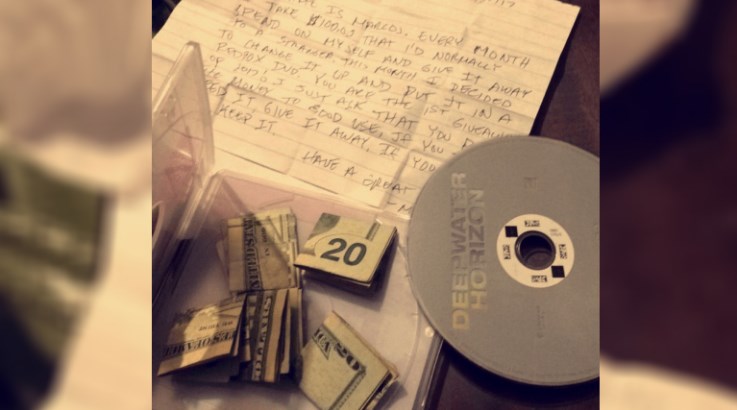 IS MARCOS. EVERY MONTH
TAKE $1000 THAT I'D NORMALLY
SPEND ON MYSELF AND GIVE IT AWAY
TO A STRANGER THIS MONTH I DECIDED
TO CHANGE IT UP AND PUT IT IN A
REDBOX DVD. YOU ARE THE 1ST GIVEAWAY
I JUST ASK THAT YOU
MONEY TO GOOD USE. IF YOU
IT GIVE IT AWAY. IF YOU
KEEP IT.
HAVE A GREAT
20
20
DEEPWATER
HORIZON